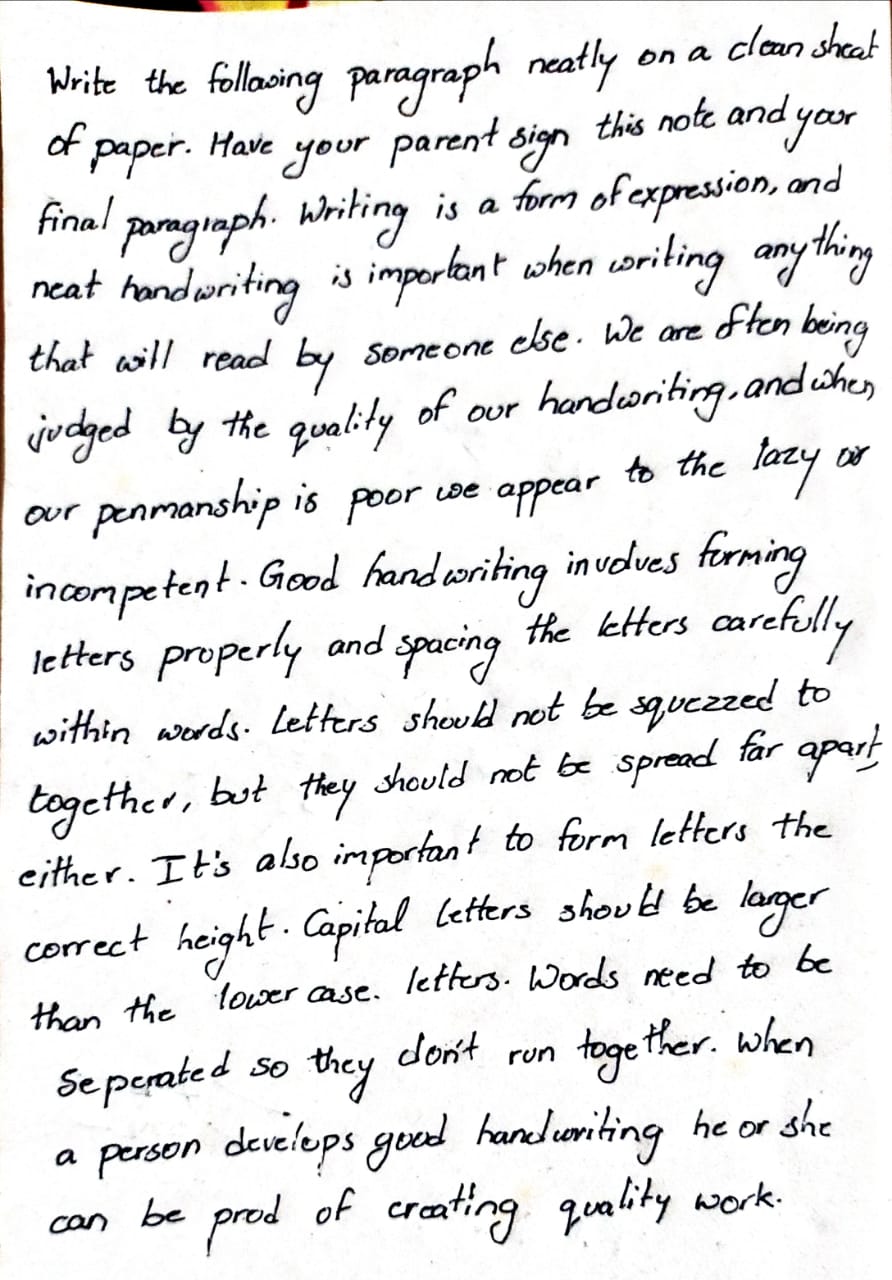 Write the following paragraph neatly on a clean sheat
of paper. Have your parent sign this note and your
final paragraph. Writing is a form of expression, and
neat handwriting is important when writing anything
that will read by someone else. We are often being
judged by the quality of our handwriting, and when
our penmanship is poor we appear to the lazy or
incompetent. Good handwriting involves forming
letters properly and spacing the letters carefully
within words. Letters should not be squezzed to
together, but they should not be spread far apart,
either. It's also important to form letters the
correct height. Capital letters should be larger
than the lower case. letters. Words need to be
Seperated so they don't run together. When
a person develops good handwriting he or she
can be prod of creating quality work.